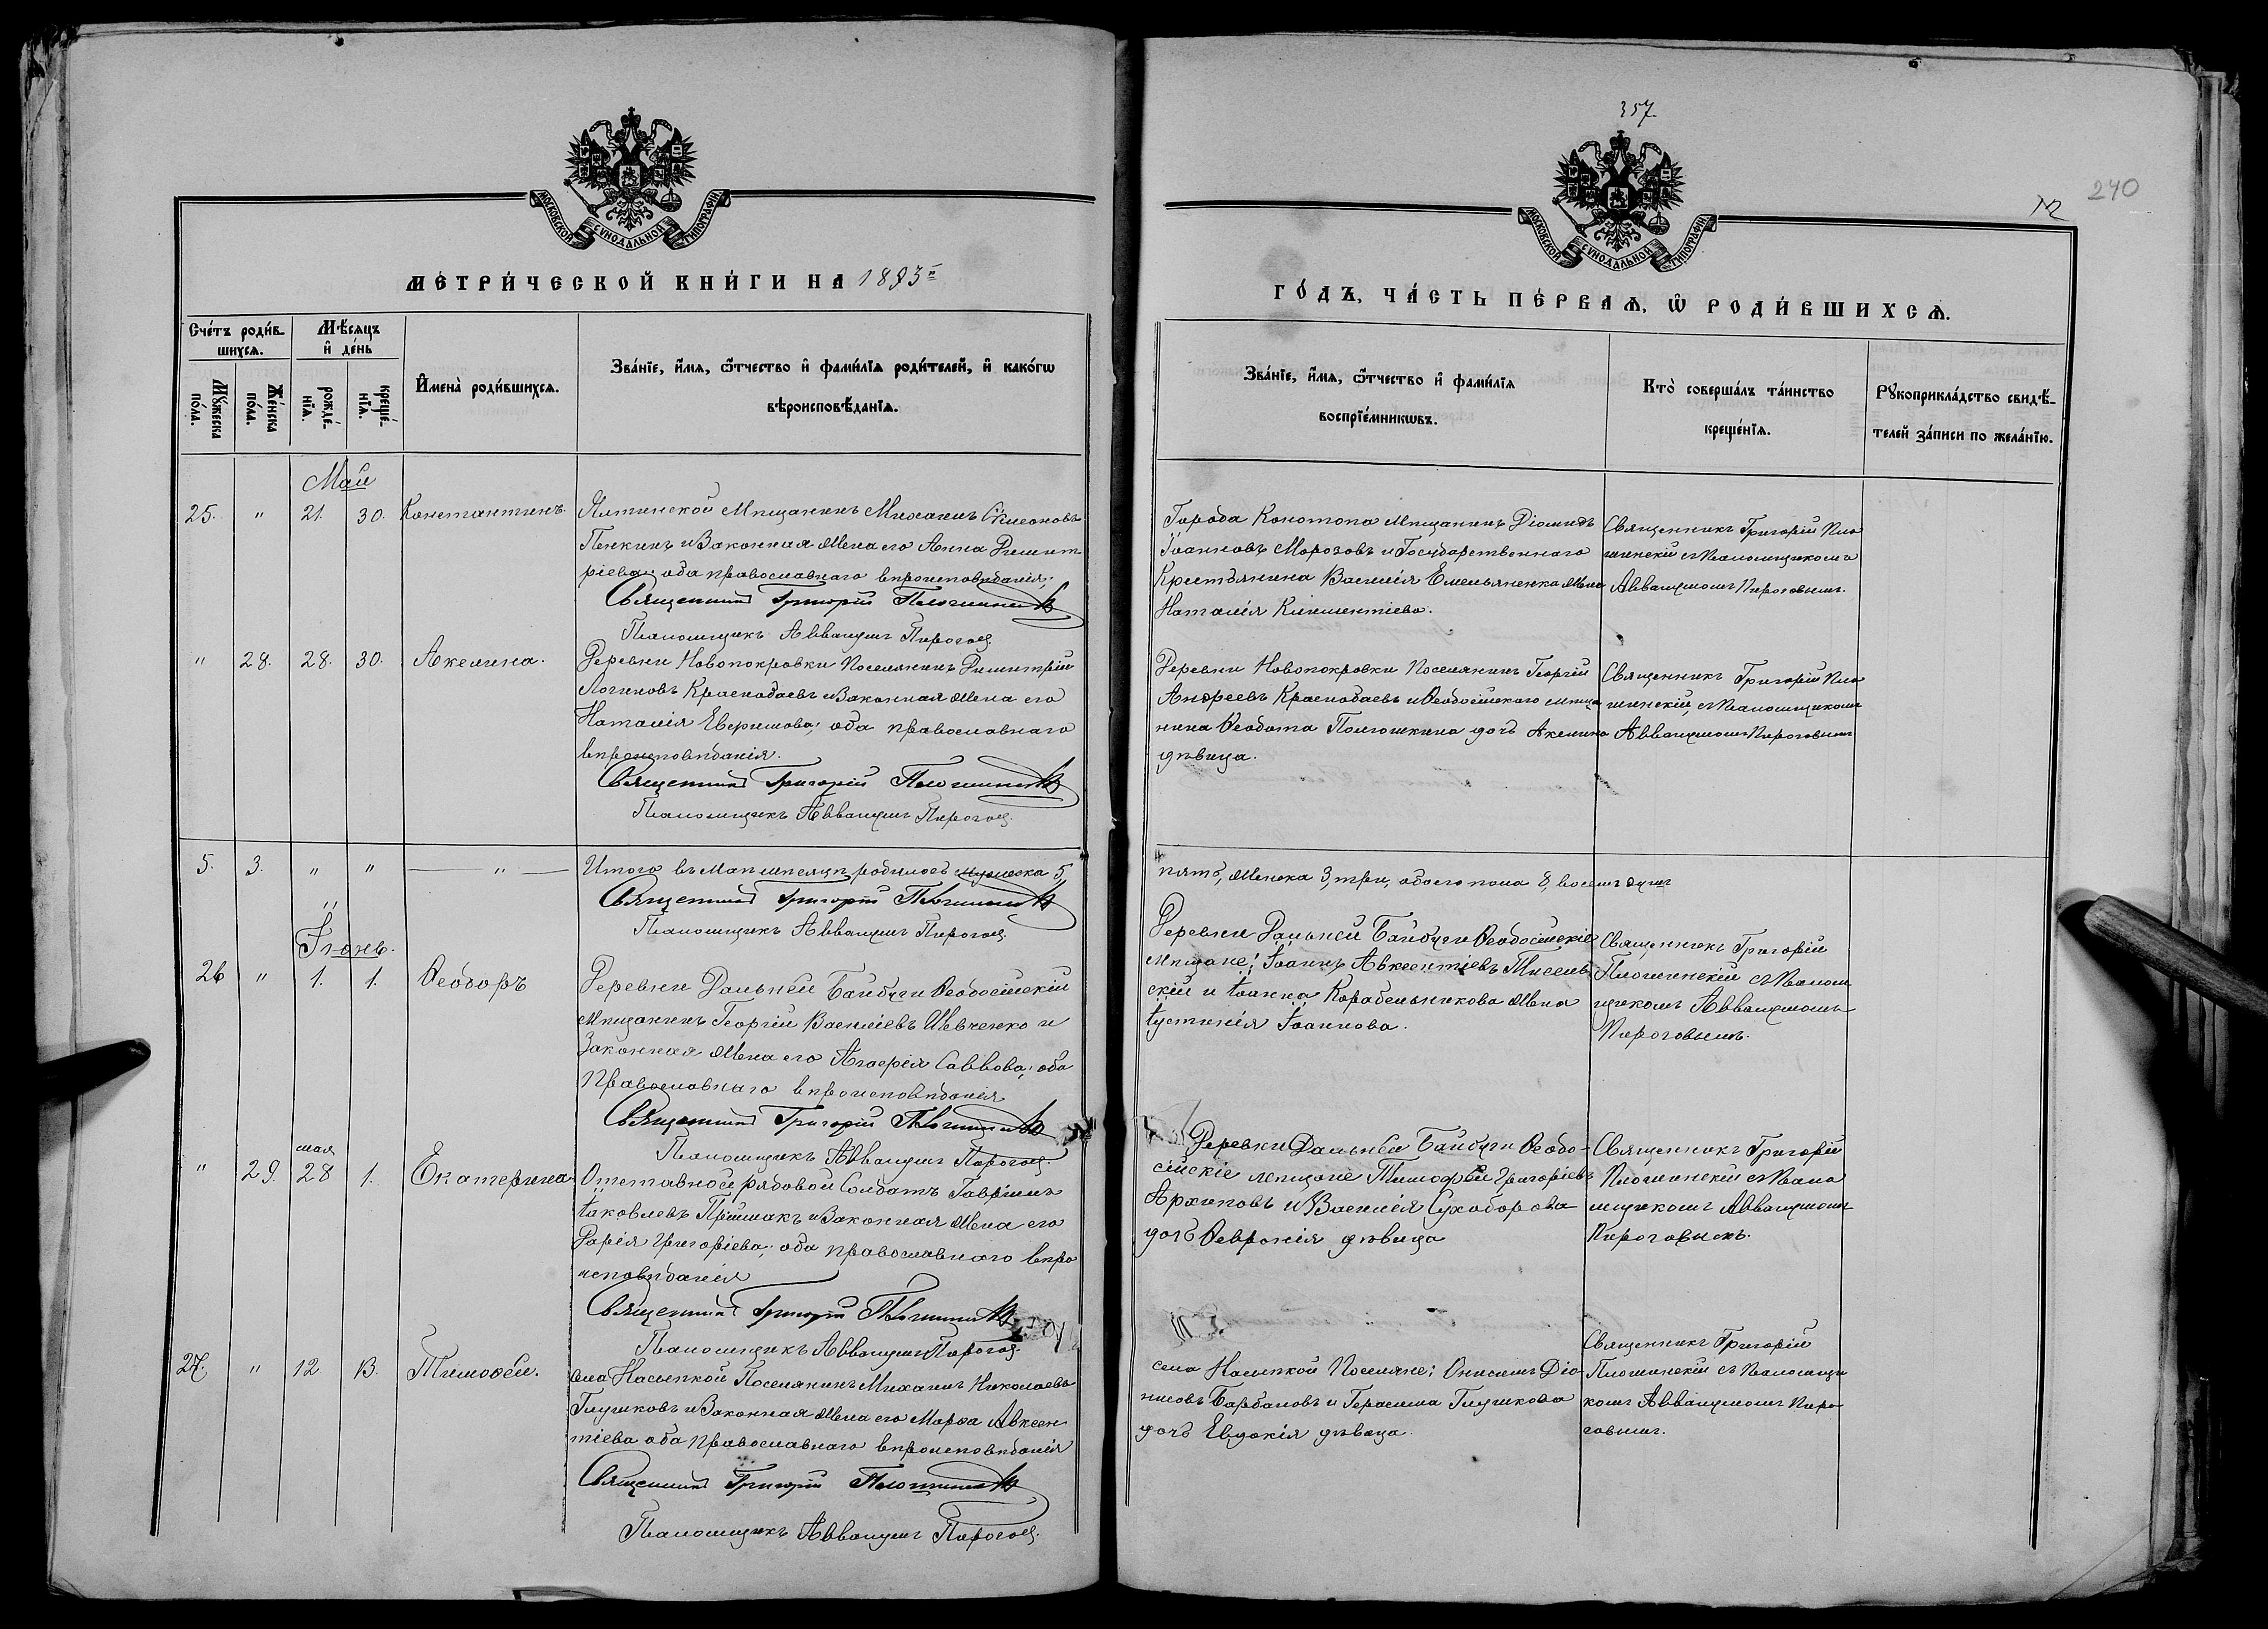 357.
240
МОСКОВСКОЙ СѴНОДАЛЬНОЙ ТИПОГРАФІИ
МЕТРИ́ЧЕСКОЙ КНИ́ГИ НА 1893й
Сче́тъ роди́в-
шихсѧ.
Мѣ́сяцъ
и҆ де́нь
Мꙋ́жеска
по́ла.
Же́нска
по́ла.
рожде́-
нїѧ.
креще́-
нїѧ.
И҆мена̀ роди́вшихсѧ.
Зва́нїе, и҆́мѧ, ѻ҆́тчество и҆ фами́лїѧ роди́телей, и҆ како́гѡ
вѣроисповѣ́данїѧ.
Май
25. " 21. 30. Константинъ
Ялтинской Мѣщанинъ Михаилъ
Пенкинъ и Законная Жена его Анна Димит
ріева; оба православнаго вѣроисповѣданія;
Священникъ Григорій
Псаломщикъ Авваkумъ Пироговъ
" 28. 28. 30. Акелина.
Деревни Новопокровки Поселянинъ Димитрій
Логиновъ Краснобаевъ и Законная Жена его
Наталія; оба православнаго
вѣроисповѣданія.
Священникъ Григорій
Псаломщикъ Аввакумъ Пироговъ
5. 3. " " — " —
Итого въ Маѣ мѣсяцѣ родилось мужеска 5,
Священникъ Григорій
Псаломщикъ Аввакумъ Пироговъ
Іюнь.
26 " 1. 1. Ѳеодоръ
Деревни Дальней Байбуги Ѳеодосійскій
Мѣщанинъ Георгій Василіевъ Шевченко и
Законная Жена его Агафія Саввова; оба
Православнаго вѣроисповѣданія
Священникъ Григорій
Псаломщикъ Аввакумъ Пироговъ
мая
" 29. 28 1. Екатерина
Отставной рядовой Солдатъ Гавріилъ
Іаковлевъ Пріймакъ и Законная Жена его
Дарія Григоріева; оба православнаго вѣро
исповѣданія
Священникъ Григорій
Псаломщикъ Аввакумъ Пироговъ
27. " 12 13. Тимоѳей.
села Насыпкой Поселянинъ Михаилъ Николаевъ
Глушковъ и Законная Жена его Марѳа Авксен
тіева оба Православнаго вѣроисповѣданія
Священникъ Григорій
Псаломщикъ Аввакумъ Пироговъ
МОСКОВСКОЙ СѴНОДАЛЬНОЙ ТИПОГРАФІИ
ГО́ДЪ, ЧА́СТЬ ПЕ́РВАѦ, Ѡ҆ РОДИ́ВШИХСѦ.
Зва́нїе, и҆́мѧ, ѻ҆́тчество и҆ фами́лїѧ
воспрїе́мникѡвъ.
Кто̀ соверша́лъ та́инство
креще́нїѧ.
Рꙋкоприкла́дство свидѣ́-
телей за́писи по жела́нїю.
Города Конотопа мѣщанинъ Діомидъ
Іоанновъ Морозовъ и Государственнаго
Крестьянина Василія Емельяненка жена
Наталія Климентіева.
Священникъ Григорій Пло
шинскій съ Псаломщикомъ
Аввакумомъ Пироговымъ.
Деревни Новопокровки Поселянинъ Георгій
Андреевъ Краснобаевъ и Ѳеодосійскаго мѣща
нина Ѳеодота дочь Акелина
дѣвица.
Священникъ Григорій Пло
шинскій, съ Псаломщикомъ
Аввакумомъ Пироговымъ
пять, Женска 3, три, обоего пола 8, восемь душъ
Деревни Дальней Байбуги Ѳеодосійскіе
мѣщане: Іоаннъ Авксентіевъ
скій и Іоанна Карабельникова жена
Іустинія Іоаннова.
Священникъ Григорій
Плошинскій съ Псалом
щикомъ Аввакумомъ
Пироговымъ.
Деревни Дальней Байбуги Ѳеодо-
сійскіе мѣщане Тимофей Григоріевъ
Архиповъ и Василія Сухоборова
дочь Ѳевронія дѣвица
Священникъ Григорій
Плошинскій съ Псало
мщикомъ Аввакумомъ
Пироговымъ.
села Насыпкой Поселяне: Онисимъ Діо-
нисовъ Барбановъ и Герасима Глушкова
дочь Евдокія дѣвица.
Священникъ Григорій
Плошинскій съ Псаломщи
комъ Аввакумомъ Пиро
говымъ.